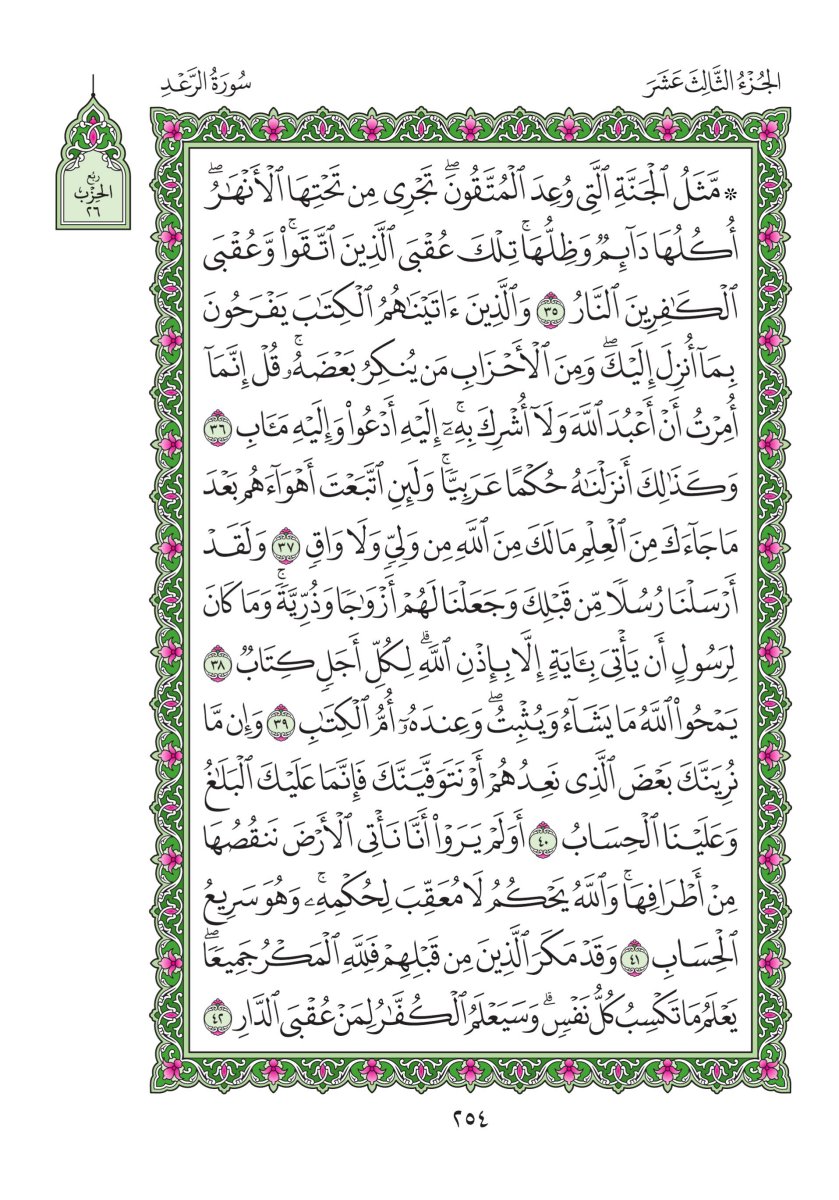 الجُزْءُ الثَّالِثَ عَشَرَ
سُورَةُ الرَّعْدِ
رُبْع
الحِزْب
٢٦
۞ مَّثَلُ ٱلْجَنَّةِ ٱلَّتِى وُعِدَ ٱلْمُتَّقُونَۖ تَجْرِى مِن تَحْتِهَا ٱلْأَنْهَٰرُۖ
أُكُلُهَا دَآئِمٌ وَظِلُّهَاۚ تِلْكَ عُقْبَى ٱلَّذِينَ ٱتَّقَوا۟ۚ وَّعُقْبَى
ٱلْكَٰفِرِينَ ٱلنَّارُ ٣٥ وَٱلَّذِينَ ءَاتَيْنَٰهُمُ ٱلْكِتَٰبَ يَفْرَحُونَ
بِمَآ أُنزِلَ إِلَيْكَۖ وَمِنَ ٱلْأَحْزَابِ مَن يُنكِرُ بَعْضَهُۥۚ قُلْ إِنَّمَآ
أُمِرْتُ أَنْ أَعْبُدَ ٱللَّهَ وَلَآ أُشْرِكَ بِهِۦٓۚ إِلَيْهِ أَدْعُوا۟ وَإِلَيْهِ مَـَٔابِ ٣٦
وَكَذَٰلِكَ أَنزَلْنَٰهُ حُكْمًا عَرَبِيًّاۚ وَلَئِنِ ٱتَّبَعْتَ أَهْوَآءَهُم بَعْدَ
مَا جَآءَكَ مِنَ ٱلْعِلْمِ مَا لَكَ مِنَ ٱللَّهِ مِن وَلِىٍّ وَلَا وَاقٍ ٣٧ وَلَقَدْ
أَرْسَلْنَا رُسُلًا مِّن قَبْلِكَ وَجَعَلْنَا لَهُمْ أَزْوَٰجًا وَذُرِّيَّةًۚ وَمَا كَانَ
لِرَسُولٍ أَن يَأْتِىَ بِـَٔايَةٍ إِلَّا بِإِذْنِ ٱللَّهِۗ لِكُلِّ أَجَلٍ كِتَابٌ ٣٨
يَمْحُوا۟ ٱللَّهُ مَا يَشَآءُ وَيُثْبِتُۖ وَعِندَهُۥٓ أُمُّ ٱلْكِتَٰبِ ٣٩ وَإِن مَّا
نُرِيَنَّكَ بَعْضَ ٱلَّذِى نَعِدُهُمْ أَوْ نَتَوَفَّيَنَّكَ فَإِنَّمَا عَلَيْكَ ٱلْبَلَٰغُ
وَعَلَيْنَا ٱلْحِسَابُ ٤٠ أَوَلَمْ يَرَوْا۟ أَنَّا نَأْتِى ٱلْأَرْضَ نَنقُصُهَا
مِنْ أَطْرَافِهَاۚ وَٱللَّهُ يَحْكُمُ لَا مُعَقِّبَ لِحُكْمِهِۦۚ وَهُوَ سَرِيعُ
ٱلْحِسَابِ ٤١ وَقَدْ مَكَرَ ٱلَّذِينَ مِن قَبْلِهِمْ فَلِلَّهِ ٱلْمَكْرُ جَمِيعًاۖ
يَعْلَمُ مَا تَكْسِبُ كُلُّ نَفْسٍۗ وَسَيَعْلَمُ ٱلْكُفَّٰرُ لِمَنْ عُقْبَى ٱلدَّارِ ٤٢
٢٥٤